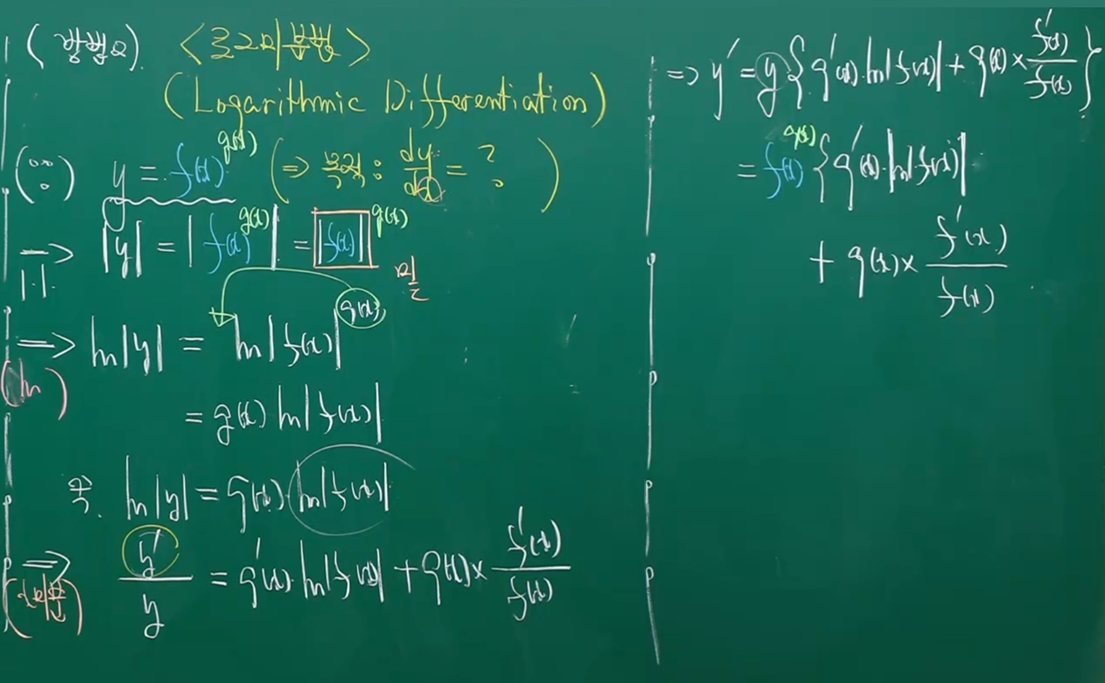 (강형모). <로그미분법>
(Logarithmic Differentiation)
y = f(x)^g(x) (=> : dy/dx = ?)
=> |y| = |f(x)^g(x)| = |f(x)|^g(x)
| |
=> ln|y| = ln|f(x)|^g(x)
(ln)
= g(x) ln|f(x)|
즉. ln|y| = g(x) ln|f(x)|
=> y'/y = g'(x) · ln|f(x)| + g(x) × f'(x)/f(x)
=> y' = y{g'(x) · ln|f(x)| + g(x) × f'(x)/f(x)}
= f(x)^g(x) {g'(x) · ln|f(x)|
+ g(x) × f'(x)/f(x)